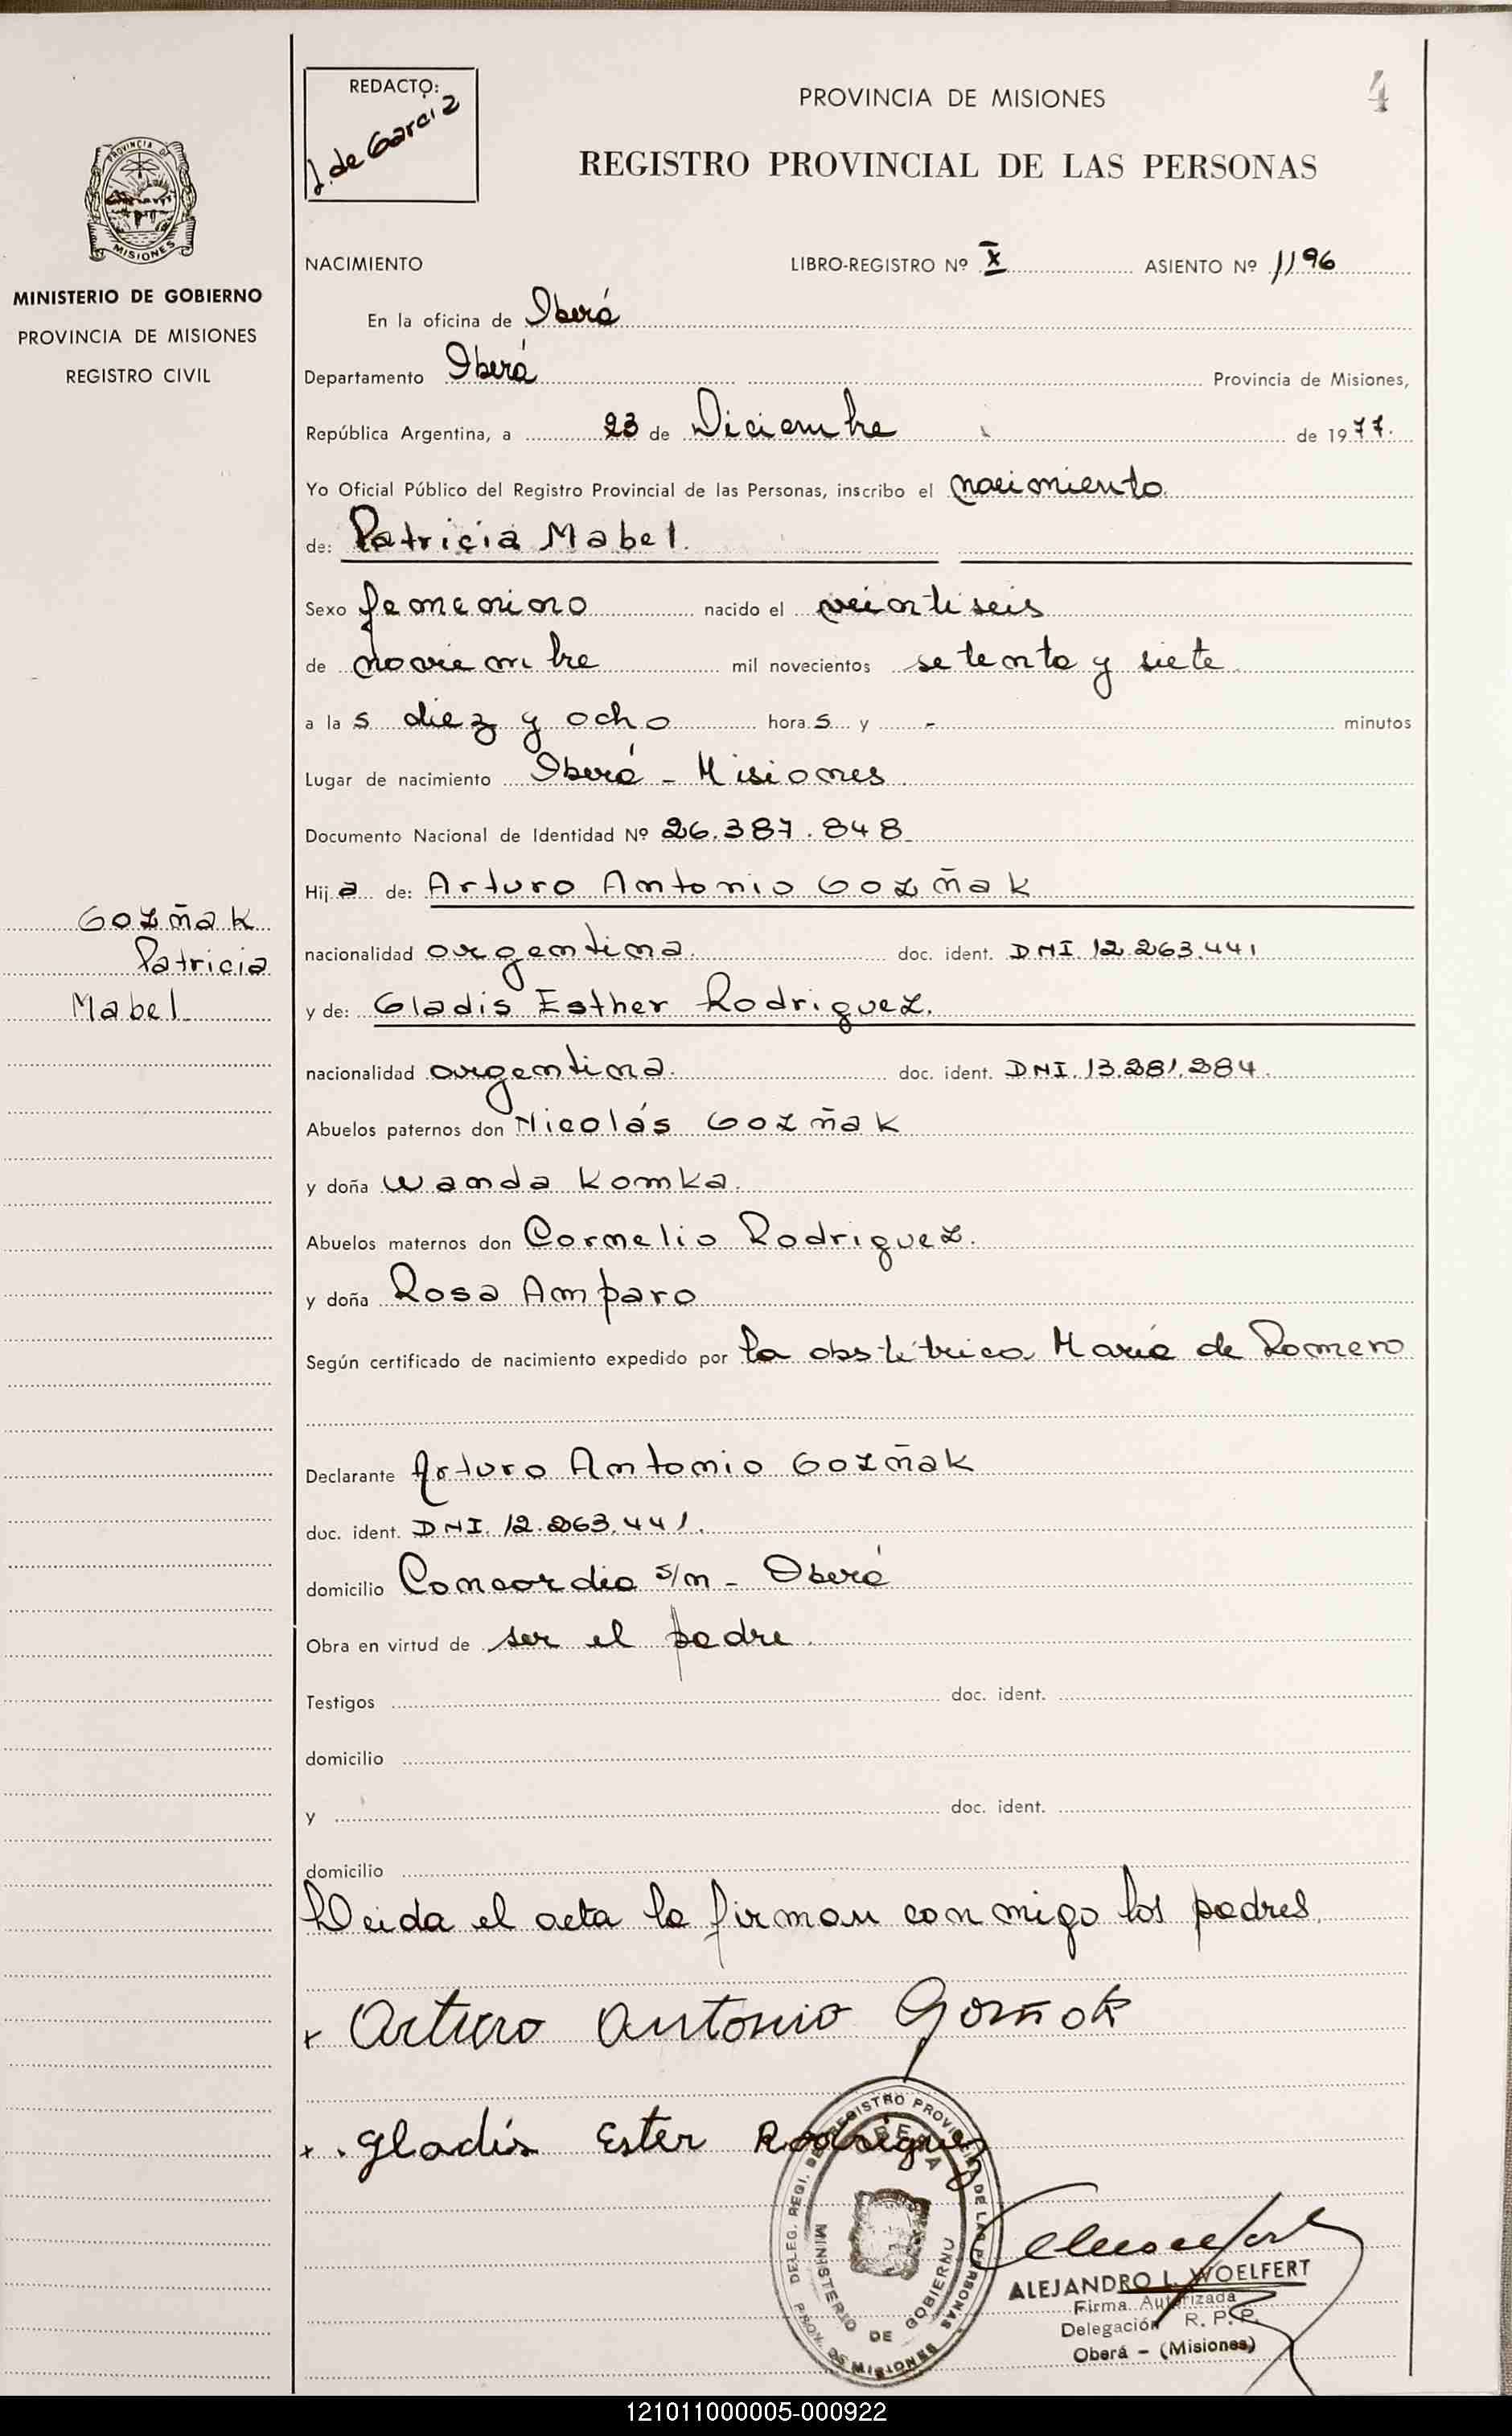 REDACTO:
J. de Garcia
PROVINCIA DE MISIONES
4
REGISTRO PROVINCIAL DE LAS PERSONAS
PROVINCIA DE
MISIONES
MINISTERIO DE GOBIERNO
PROVINCIA DE MISIONES
REGISTRO CIVIL
NACIMIENTO LIBRO-REGISTRO Nº X ASIENTO Nº 1196
En la oficina de Oberá
Departamento Oberá Provincia de Misiones,
República Argentina, a 23 de Diciembre de 1977.
Yo Oficial Público del Registro Provincial de las Personas, inscribo el nacimiento
de: Patricia Mabel.
Sexo femenino nacido el veintiseis
de noviembre mil novecientos setenta y siete
a las diez y ocho horas y - minutos
Lugar de nacimiento Oberá - Misiones
Documento Nacional de Identidad Nº 26.387.848
Hija de: Arturo Antonio Gozñak
GOZÑAK
Patricia
Mabel
nacionalidad argentina. doc. ident. DNI. 12.263.441
y de: Gladis Esther Rodriguez.
nacionalidad argentina. doc. ident. DNI. 13.281.284.
Abuelos paternos don Nicolás Gozñak
y doña Wanda Komka.
Abuelos maternos don Cornelio Rodriguez.
y doña Rosa Amparo
Según certificado de nacimiento expedido por la obstétrica María de Romero
Declarante Arturo Antonio Gozñak
doc. ident. DNI. 12.263.441.
domicilio Concordia s/n - Oberá
Obra en virtud de ser el padre.
Testigos doc. ident.
domicilio
y doc. ident.
domicilio
Leida el acta la firman conmigo los padres.
x Arturo Antonio Gozñak
x. Gladis Ester Rodriguez
DELEG. REGI. DEL REGISTRO PROVINCIAL DE LAS PERSONAS
OBERA
MINISTERIO DE GOBIERNO
PROV. DE MISIONES
ALEJANDRO L. WOELFERT
Firma Autorizada
Delegación R. P. P.
Oberá - (Misiones)
121011000005-000922